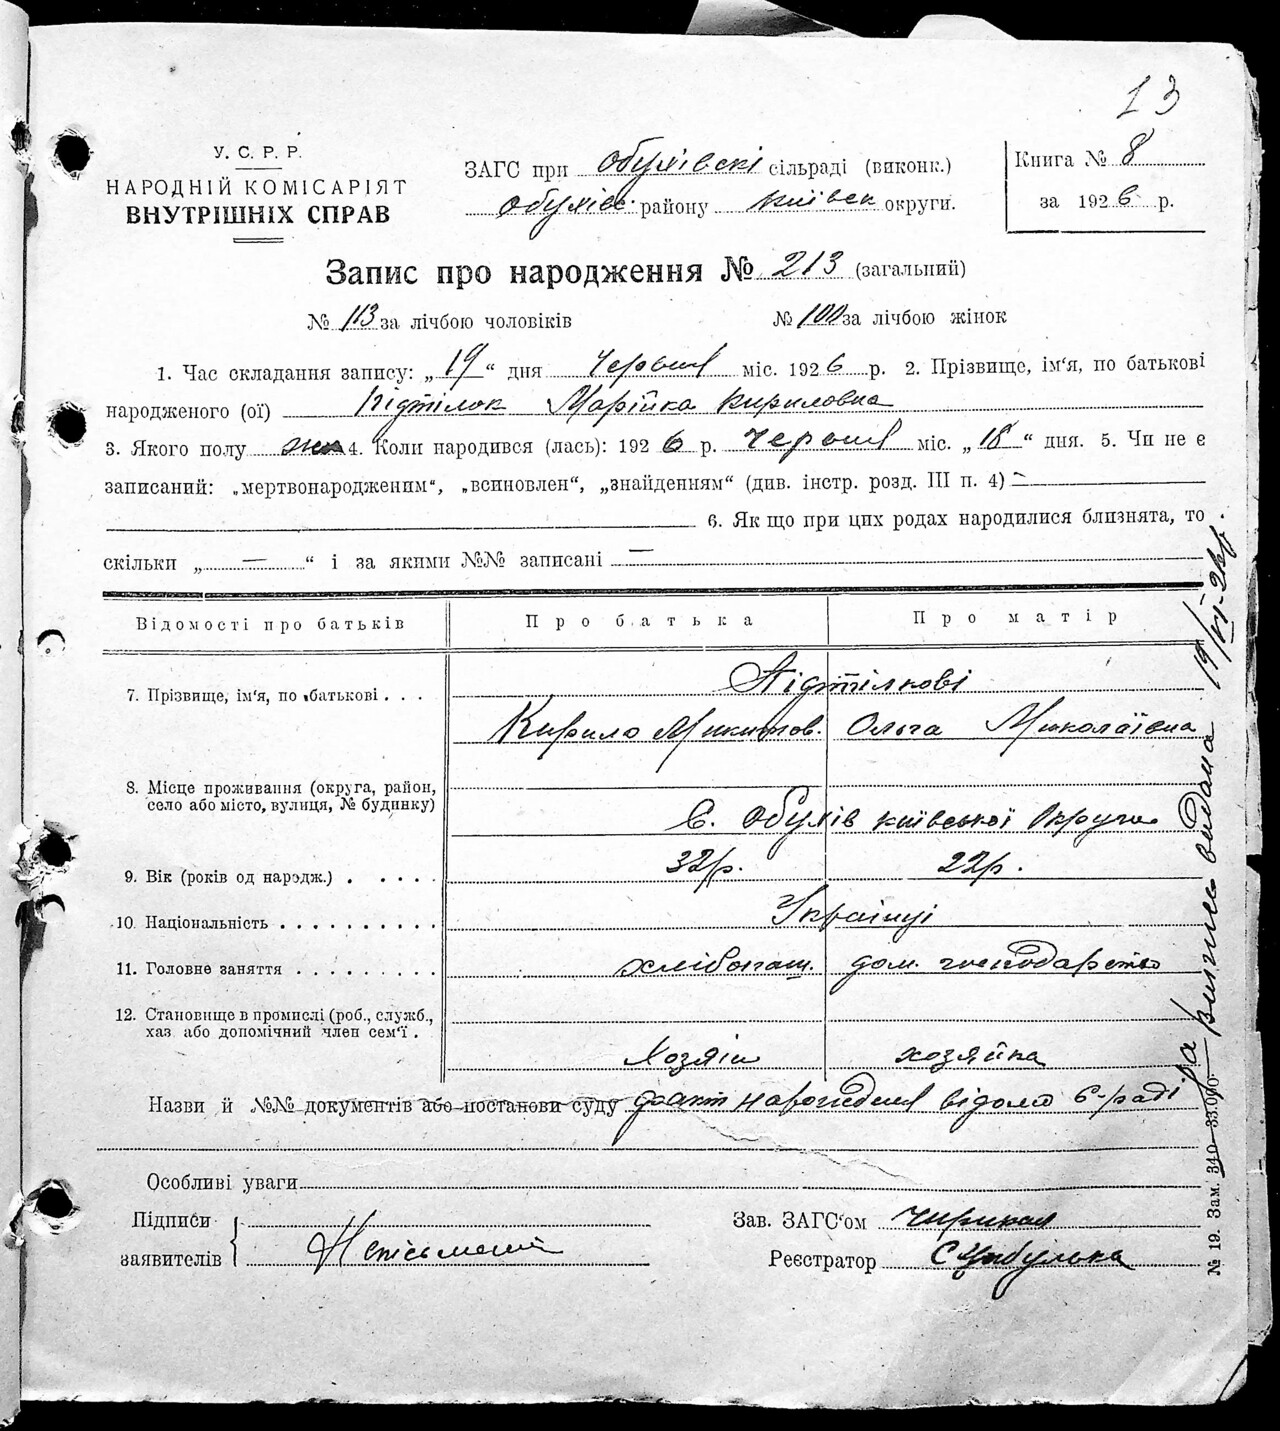 13
У. С. Р. Р.
НАРОДНІЙ КОМІСАРІЯТ
ВНУТРІШНІХ СПРАВ
ЗАГС при Обухівскі сільраді (виконк.)
Обухівс. району Київск округи.
Книга № 8
за 1926 р.
Запис про народження № 213 (загальний)
№ 113 за лічбою чоловіків № 100 за лічбою жінок
1. Час складання запису: „19“ дня Червня міс. 1926 р. 2. Прізвище, ім‘я, по батькові
народженого (ої) Підтілок Марійка Кириловна
3. Якого полу жін 4. Коли народився (лась): 1926 р. Червня міс. „18“ дня. 5. Чи не є
записаний: „мертвонародженим“, „всиновлен“, „знайденням“ (див. інстр. розд. III п. 4) –
6. Як що при цих родах народилися близнята, то
скільки „ — “ і за якими №№ записані —
Відомості про батьків Про батька Про матір
7. Прізвище, ім‘я, по батькові . . . Підтілкові
Кирило Микитов. Ольга Миколаївна
8. Місце проживання (округа, район,
село або місто, вулиця, № будинку)
С. Обухів київської Округи
9. Вік (років од нарэдж.) . . . . . 32р. 22р.
10. Національність . . . . . . . . . . Українці
11. Головне заняття . . . . . . . . . хлібопаш. дом. господарство
12. Становище в промислі (роб., служб.,
хаз або допомічний член сем‘ї .
Хозяін хозяйка
Назви й №№ документів або постанови суду факт народження відомо С-раді
Особливі уваги
Підписи
заявителів Неписьмений
Зав. ЗАГС‘ом
Реєстратор С Цибулька
№ 19. Зам. 340—33.000.
виписка видана 19/VI-26р.